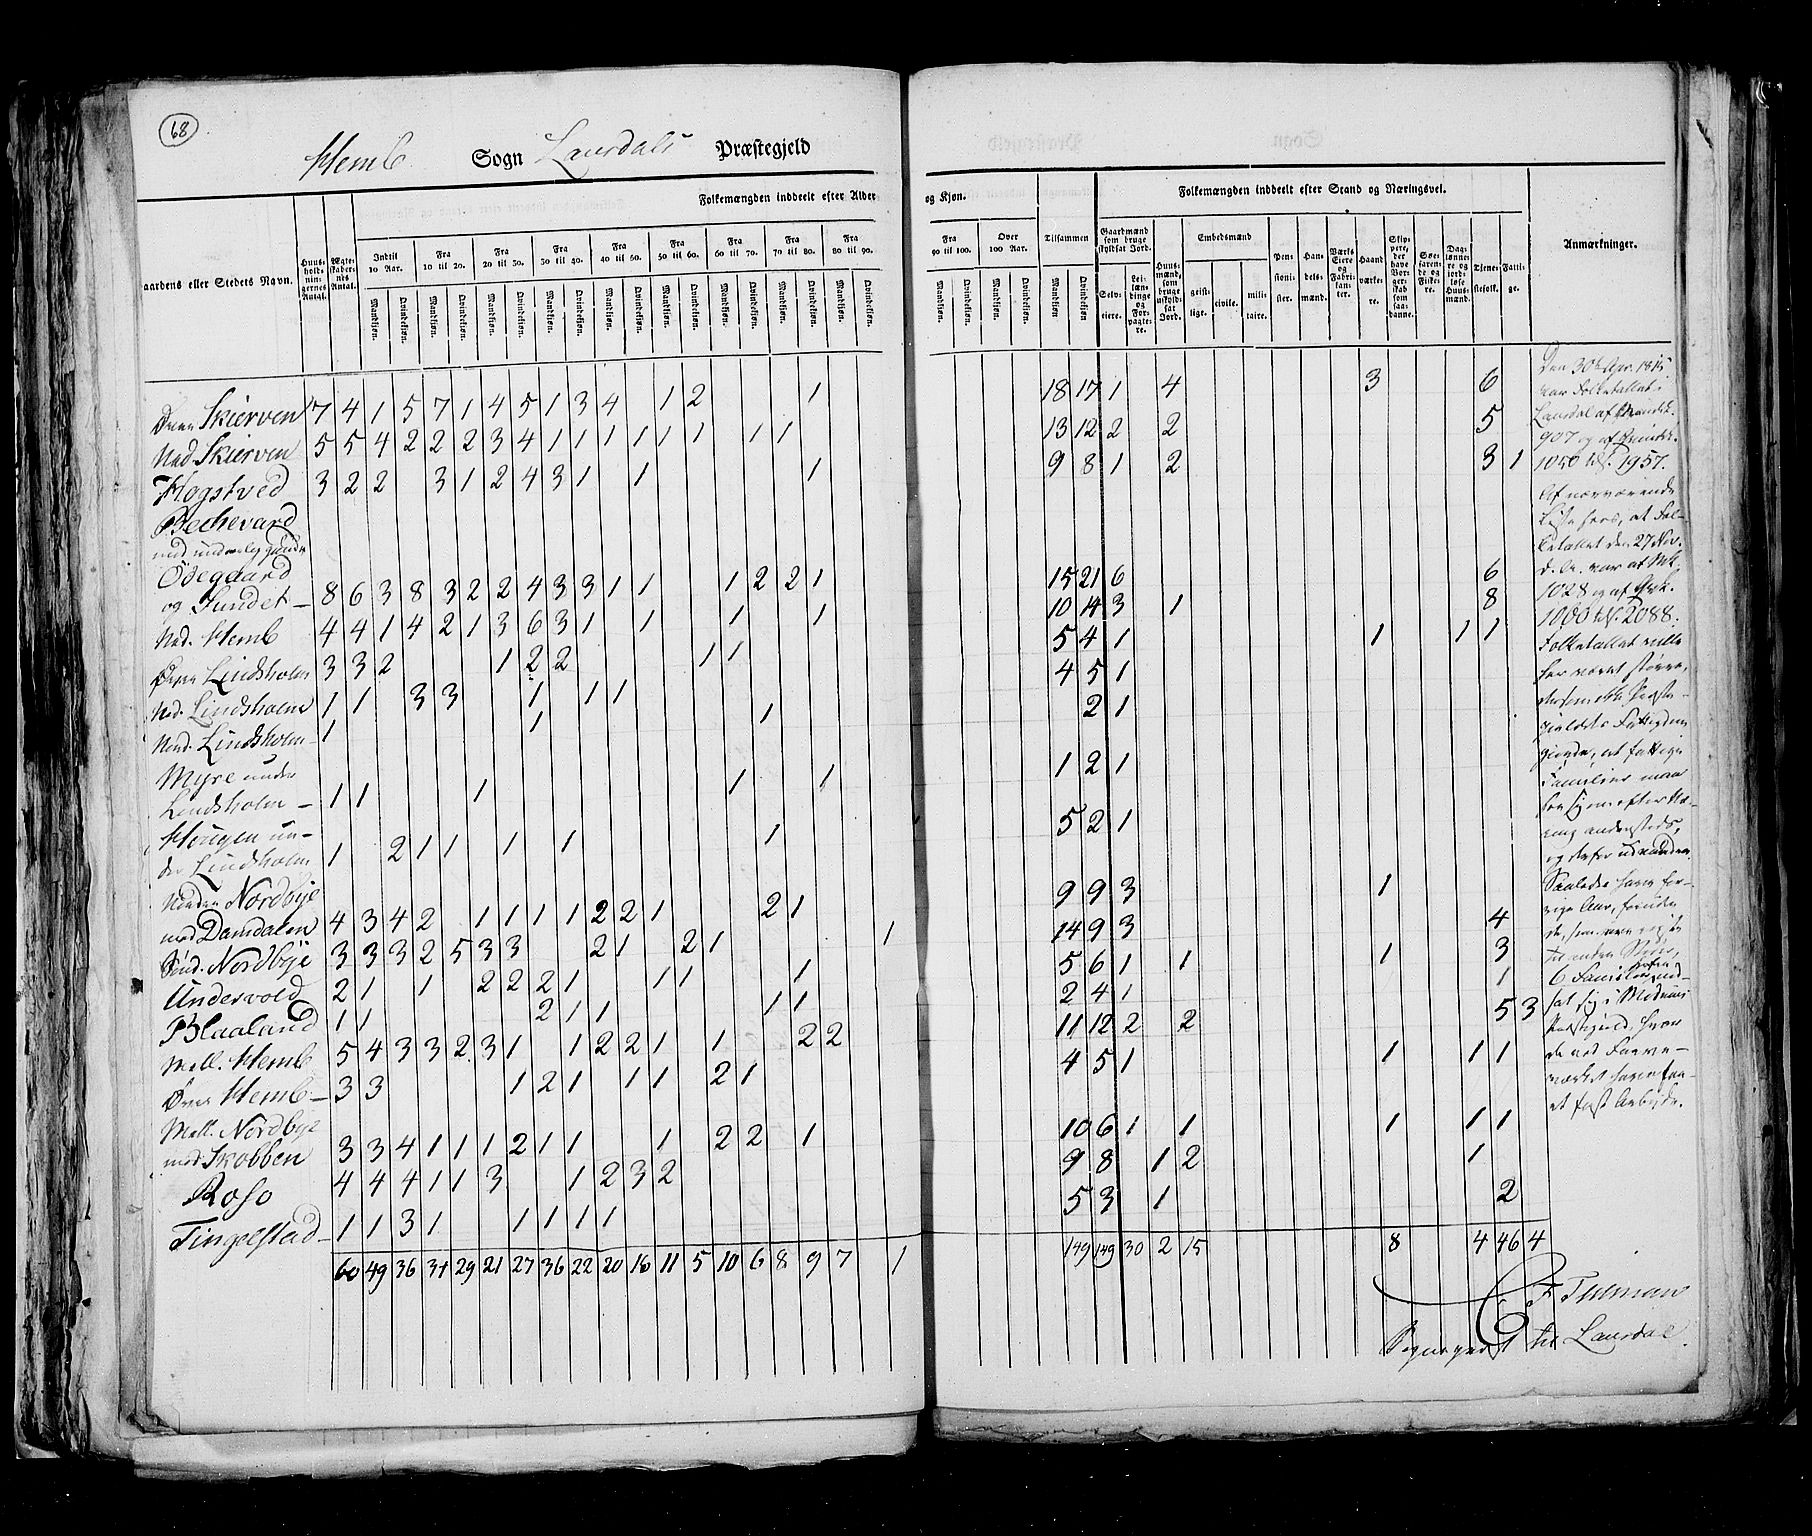 68
Hemb Sogn Laurdals Præstegjeld
Præstegjeld Sogn
Folkemængden inddeelt efter Alder
og Kjøn.
Folkemængden inddeelt efter Stand og Næringsvei.
aardens eller Stedets Navn.
Huus-holdningernes Antal.
Ægteskabernes Antal.
Indtil 10 Aar. Fra 10 til 20. Fra 20 til 30. Fra 30 til 40. Fra 40 til 50. Fra 50 til 60. Fra 60 til 70. Fra 70 til 80. Fra 80 til 90.
Mandkjøn. Qvindekjøn. Mandkjøn. Qvindekjøn. Mandkjøn. Qvindekjøn. Mandkjøn. Qvindekjøn. Mandkjøn. Qvindekjøn. Mandkjøn. Qvindekjøn. Mandkjøn. Qvindekjøn. Mandkjøn. Qvindekjøn. Mandkjøn. Qvindekjøn.
Fra 90 til 100. Over 100 Aar. Tilsammen
Mandkjøn. Qvindekjøn. Mandkjøn. Qvindekjøn. Mandkjøn Qvindekjøn.
Gaardmænd som bruge skyldsat Jord.
Selveiere. Leilændinge og Forpagtere.
Huusmænd, som bruge uskyldsat Jord.
Embedsmænd
geistlige. civile. militaire.
Pensionister.
Handelsmænd.
Værks Eiere og Fabrikanter.
Haandværkere.
Skippere, der have Borgerskab som saadanne.
Søefarende og Fiskere.
Daglønnere og jordløse Huusmænd.
Tjenestefolk.
Fattige.
Anmærkninger.
Øvre Skierven 7 4 1 5 7 1 4 5 1 3 4 1 2 1 18 17 1 4 3 6
Ned. Skierven 5 5 4 2 2 2 3 4 1 1 1 1 1 1 1 1 13 12 2 2 5
Hogstved 3 2 2 3 1 2 4 3 1 1 1 9 8 1 2 3 1
Bechevard
med underliggende
Ødegaard
og Sundet 8 6 3 8 3 2 2 4 3 3 1 1 1 2 2 1 15 21 6 6
Ned. Hemb 4 4 1 4 2 1 3 6 3 1 1 1 1 10 14 3 1 8
Øvre Lindsholm 3 3 2 1 2 2 1 1 5 4 1 1 1 1
Ned. Lindsholm 1 1 3 3 1 1 1 4 5 1
Nord. Lindsholm 1 1 1 2 1
Myre under
Lindsholm 1 1 1 1 1 1 2 1
Haugen un-
der Lindsholm 1 2 1 1 1 1 1 5 2 1
Norden Nordbye
med Damdalen 4 3 4 2 1 1 1 1 2 2 1 2 1 9 9 3 1
Sønd. Nordbye 3 3 3 2 5 3 3 2 1 2 1 1 14 9 3 4
Undersvold 2 1 1 2 2 2 1 1 1 1 5 6 1 1 1 3
Blaaland 1 1 2 1 1 1 1 2 4 1 1
Mell. Hemb 5 4 3 3 2 3 1 1 2 2 1 1 2 2 11 12 2 2 5 3
Øvre Hemb 3 3 1 2 1 1 1 2 1 4 5 1 1 1 1
Mell. Nordbye
med Skobben 3 3 4 1 1 1 2 1 1 1 2 2 1 10 6 1 1 1 1 1
Roso 4 4 4 1 1 3 1 2 3 2 9 8 1 2 1
Tingelstad 1 1 3 1 1 1 1 1 5 3 1 2
60 49 36 34 29 21 27 36 22 20 16 11 5 10 6 8 9 7 1 149 149 30 2 15 8 4 46 4
Den 30te Apr. 1815
var Folketallet i
Laurdal af Mandk.
907 og af Qvindek.
1050 tils. 1957.
Af nærværende
Liste sees, at Fol-
ketallet den 27 Nov.
d. A. var af Mk.
1028 og af Qvk.
1060 tils. 2088.
Folketallet ville
have været større,
dersom ikke Præste-
gieldets Fattigdom
giorde, at fattige
Familier maa
see sig om efter Næ-
ring andensteds,
og derfor udvandre.
6 Familier
sat sig i Modums
Præstegield, hvor
de ved Farve-
værket have faa-
et fast Arbeide.
F Thilman
Sognepræst til Laurdal